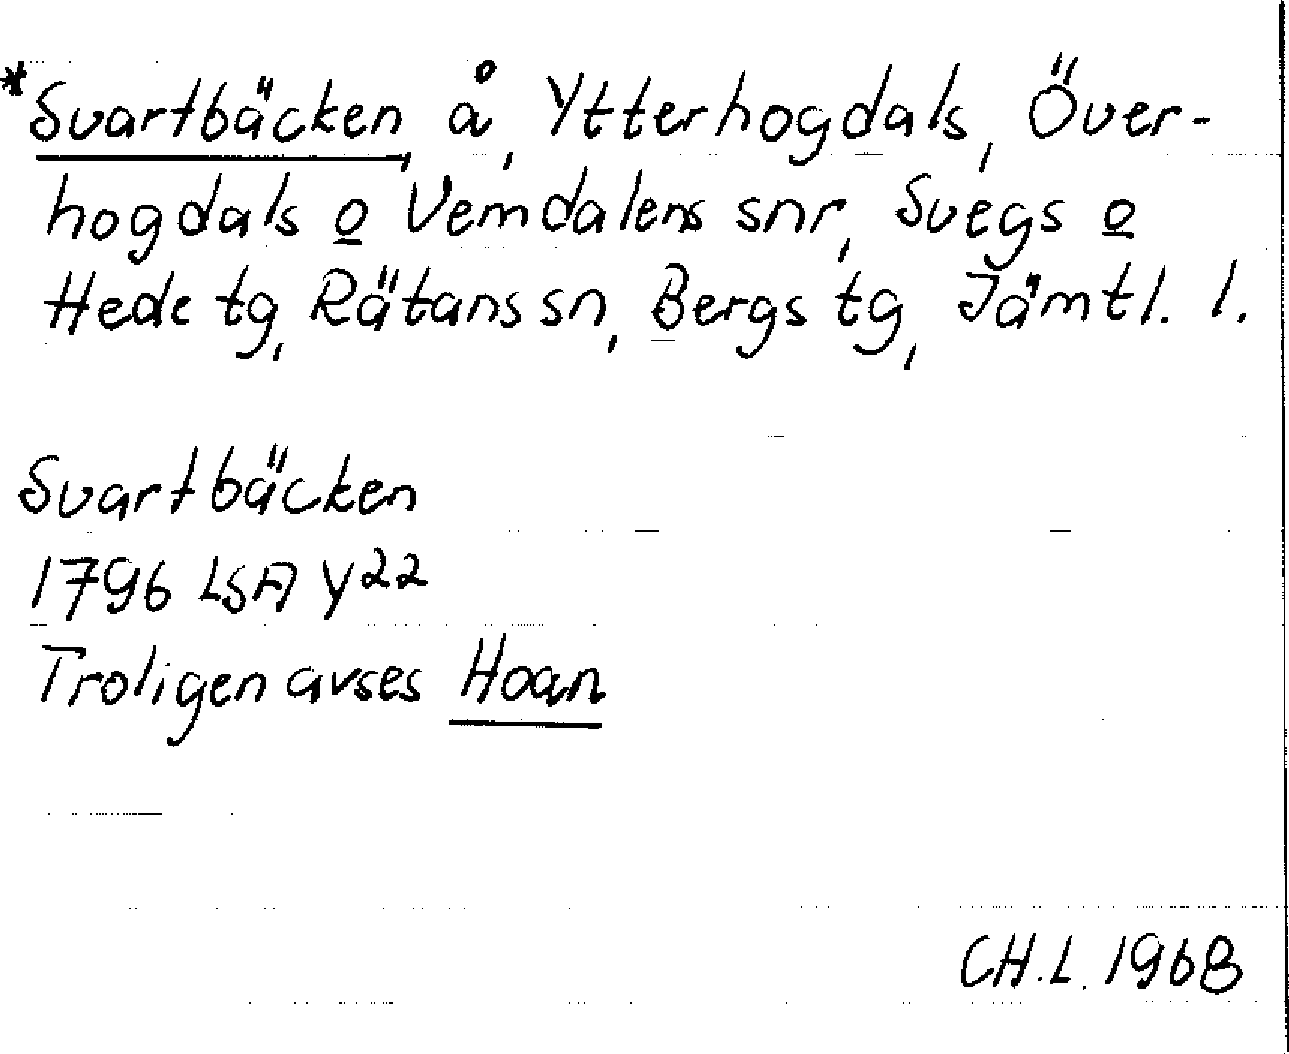 *Svartbäcken, å, Ytterhogdals, Över-
hogdals o Vemdalens snr, Svegs o
Hede tg, Rätans sn, Bergs tg, Jämtl. l.
Svartbäcken
1796 LSA Y22
Troligen avses Hoan
CH.L. 1968